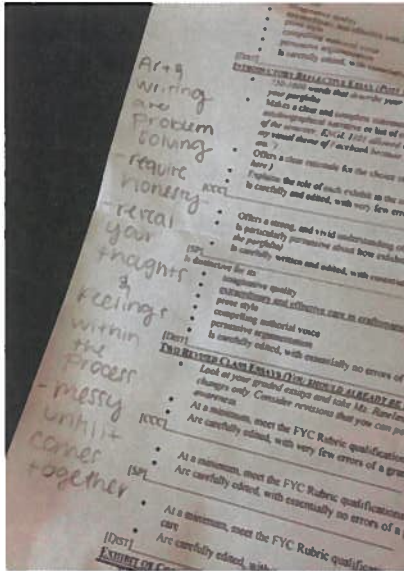 Art &
writing
are
Problem
solving
- require
honesty
- reveal
your
thoughts
&
Feelings
within
the
process
- messy
until it
comes
together
Is carefully edited, with
[DIST]
INTRODUCTORY REFLECTIVE ESSAY
words that describe your
your portfolio
Makes a clear and complete
Offers a clear rationale for the choice
here)
Explains the role of each exhibit in the
Is carefully and edited, with very few
[CCC]
Offers a strong, and vivid understanding of
Is particularly persuasive about how
the portfolio)
Is carefully written and edited, with
[SP]
Is distinctive for its
imaginative quality
extraordinary and effective care in
prose style
compelling authorial voice
persuasive argumentation
Is carefully edited, with essentially no errors of
[DIST]
TWO REVISED CLASS ESSAYS (YOU SHOULD ALREADY BE
Look at your graded essays and take Ms.
changes only. Consider revisions that you can
awareness
At a minimum, meet the FYC Rubric qualification
Are carefully edited, with very few errors of a
[CCC]
At a minimum, meet the FYC Rubric qualifications
Are carefully edited, with essentially no errors of a
[SP]
At a minimum, meet the FYC Rubric
care
Are carefully edited, with
[DIST]
EXHIBIT OF